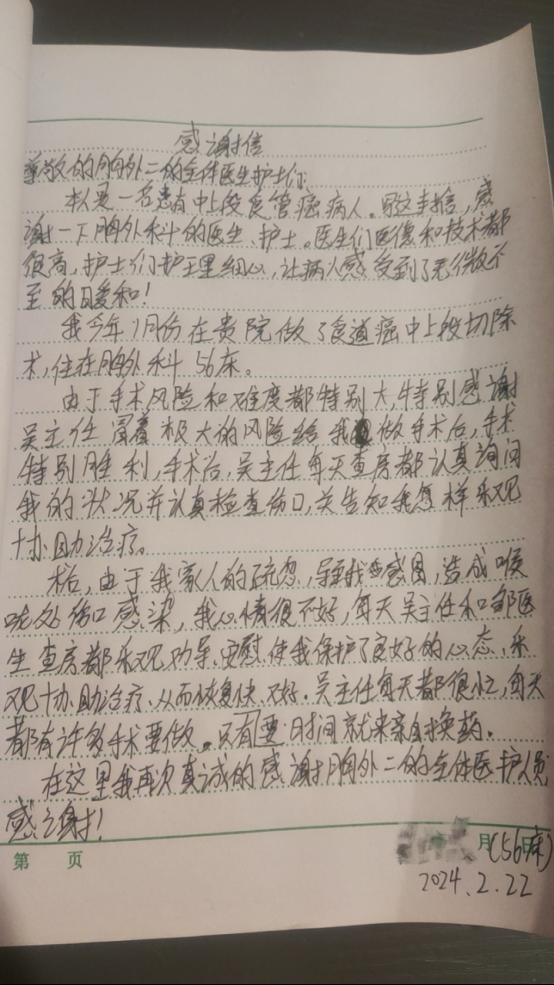 感谢信
尊敬的胸外二的全体医生护士们:
本人是一名患者中上段食管癌病人。写这封信,感
谢一下胸外科的医生、护士。医生们医德和技术都
很高,护士们护理细心,让病人感受到了无微不
至的暖和!
我今年1月份在贵院做了食道癌中上段切除
术,住在胸外科56床。
由于手术风险和难度都特别大,特别感谢
吴主任冒着极大的风险给我做手术后,手术
特别胜利,手术后,吴主任每天查房都认真询问
我的状况并认真检查伤口,关告知我怎样乐观
协助治疗。
术后,由于我家人的疏忽,导致我感冒,造成喉
咙处伤口感染,我心情很不好,每天吴主任和邹医
生查房都乐观劝导、安慰,使我保护了良好的心态,乐
观协助治疗,从而恢复快、好。吴主任每天都很忙,每天
都有许多手术要做。只有要时间就来亲自换药。
在这里我再次真诚的感谢胸外二的全体医护人员
感谢!
月(56床)
第 页
2024.2.22